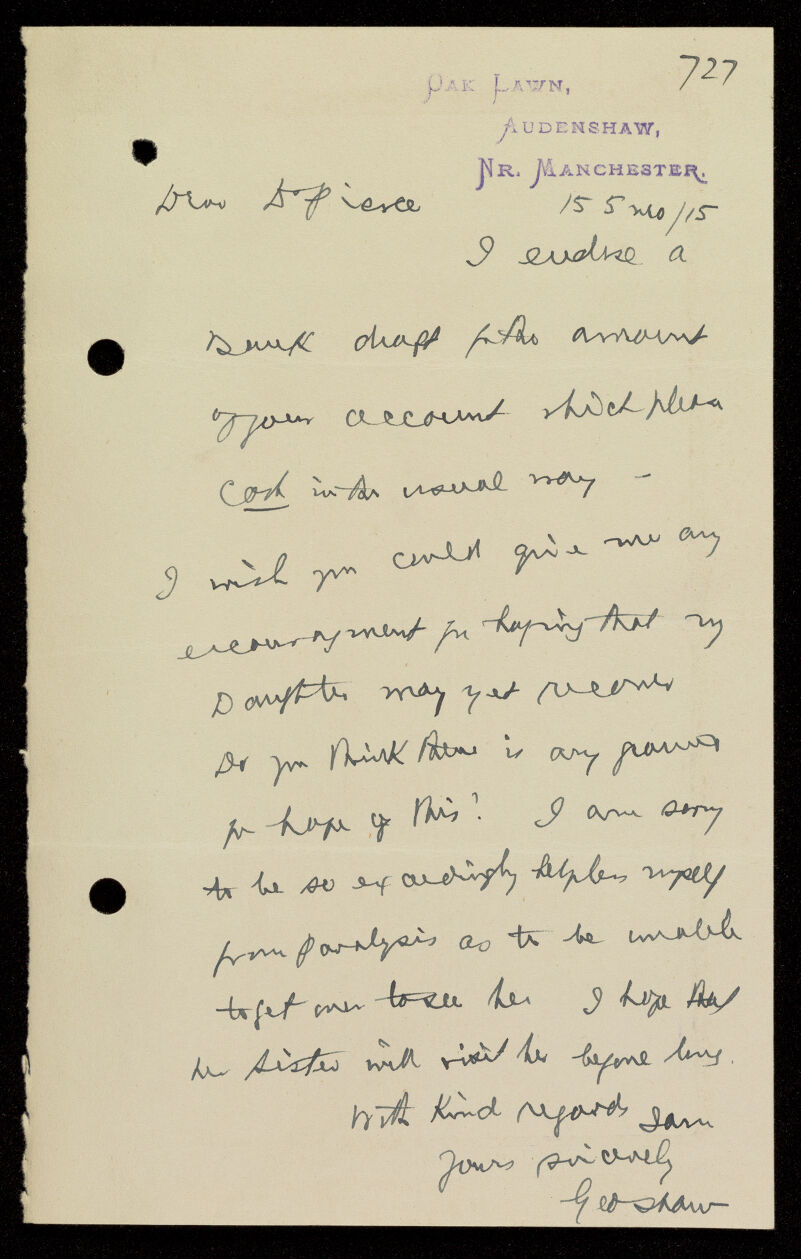 727
OAK LAWN,
AUDENSHAW,
NR. MANCHESTER.
Dear Dr Pierce
15 5 mo/15
I enclose a
Bank draft for the amount
of your account which please
Cash in the usual way –
I wish you could give me any
encouragement for hoping that my
Daughter may yet recover
Do you think there is any ground
for hope of this? I am sorry
to be so exceedingly helpless myself
from Paralysis as to be unable
to get over to see her I hope that
her sister will visit her before long.
With Kind regards I am
Yours sincerely
Geo Shaw